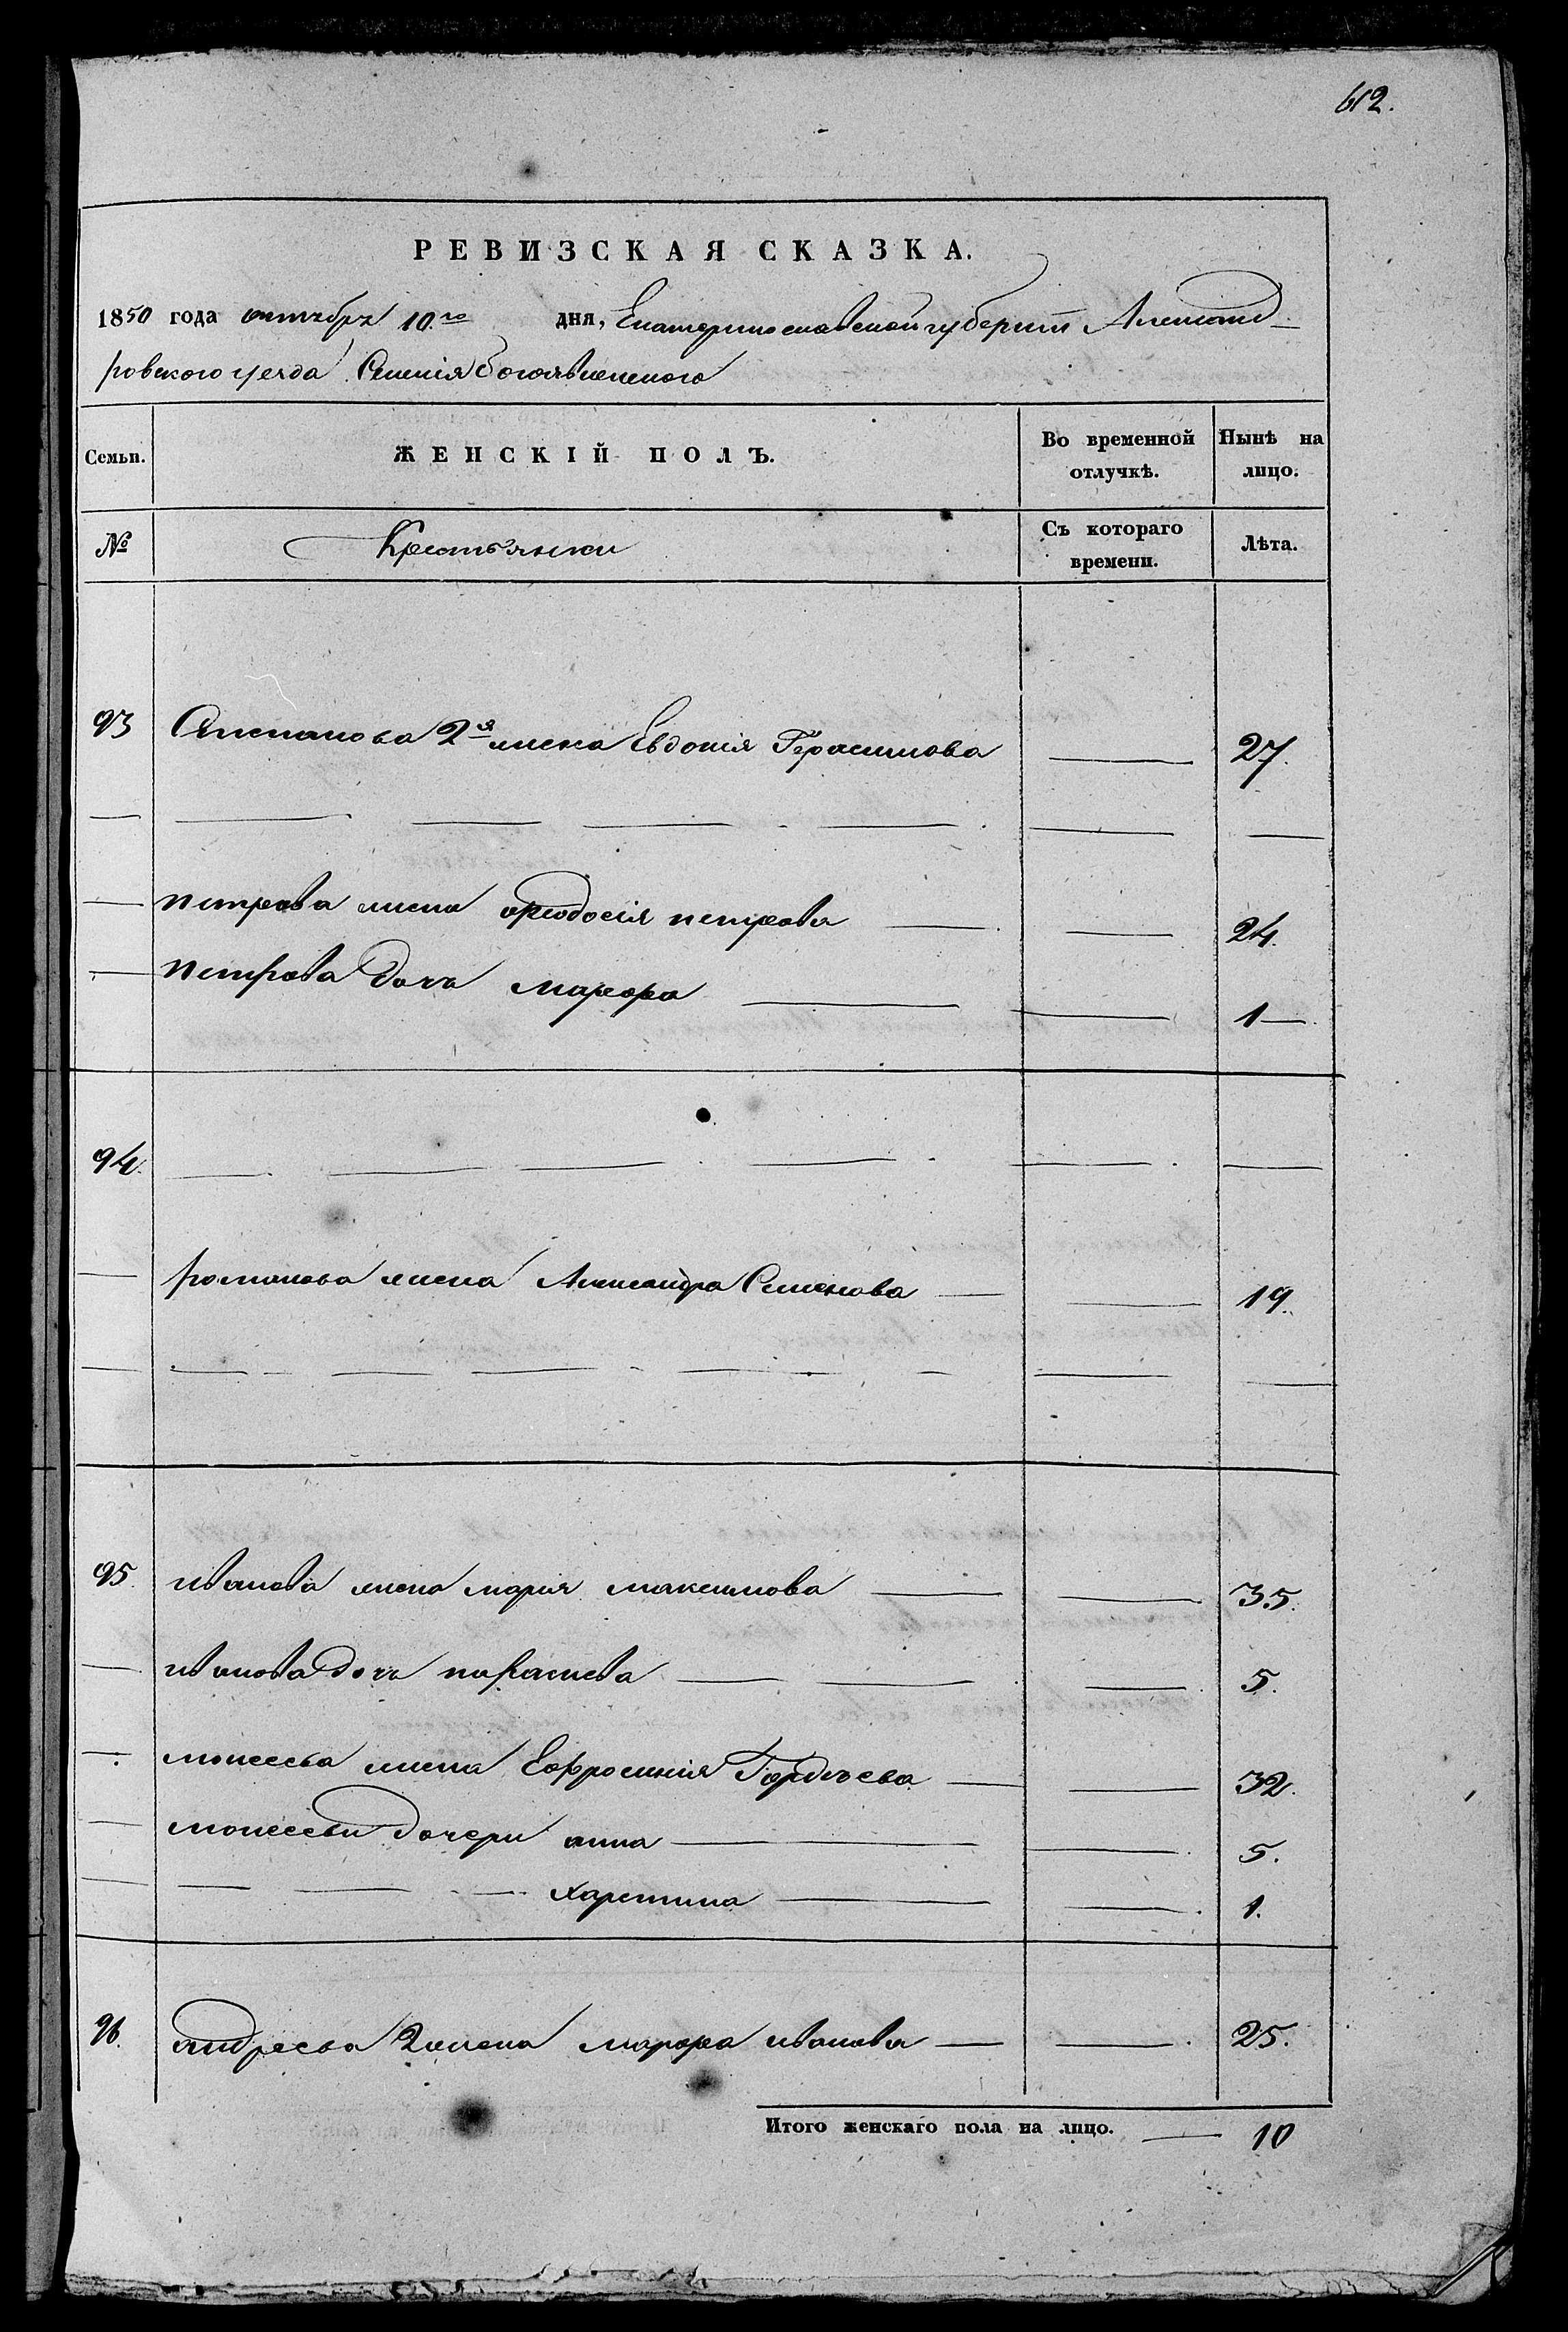 612.
РЕВИЗСКАЯ СКАЗКА.
1850 года октября 10го дня, Екатеринославской губернии Александ-
ровского уезда Селения Богоявленского
Семьи. ЖЕНСКІЙ ПОЛЪ. Во временной отлучкѣ. Нынѣ на лицо.
№ Крестьянки Съ котораго времени. Лѣта.
93 Степанова 2я жена Евдокія Герасимова — 27.
— — — — — — —
— петрова жена феодосія петрова — — 24.
— петрова дочь марфа — — 1—
94. — — — — — —
— романова жена Александра Семенова — — 19.
— — — — — — — — —
95. иванова жена марія максимова — — 35.
— иванова дочь параскева — — — 5.
— моисеева жена Ефросинія Гордѣева — — 32.
— моисеевы дочери анна — — 5.
— — — — харитина — — 1.
96. андреева 2 жена марфа иванова — — 25.
Итого женскаго пола на лицо. — 10